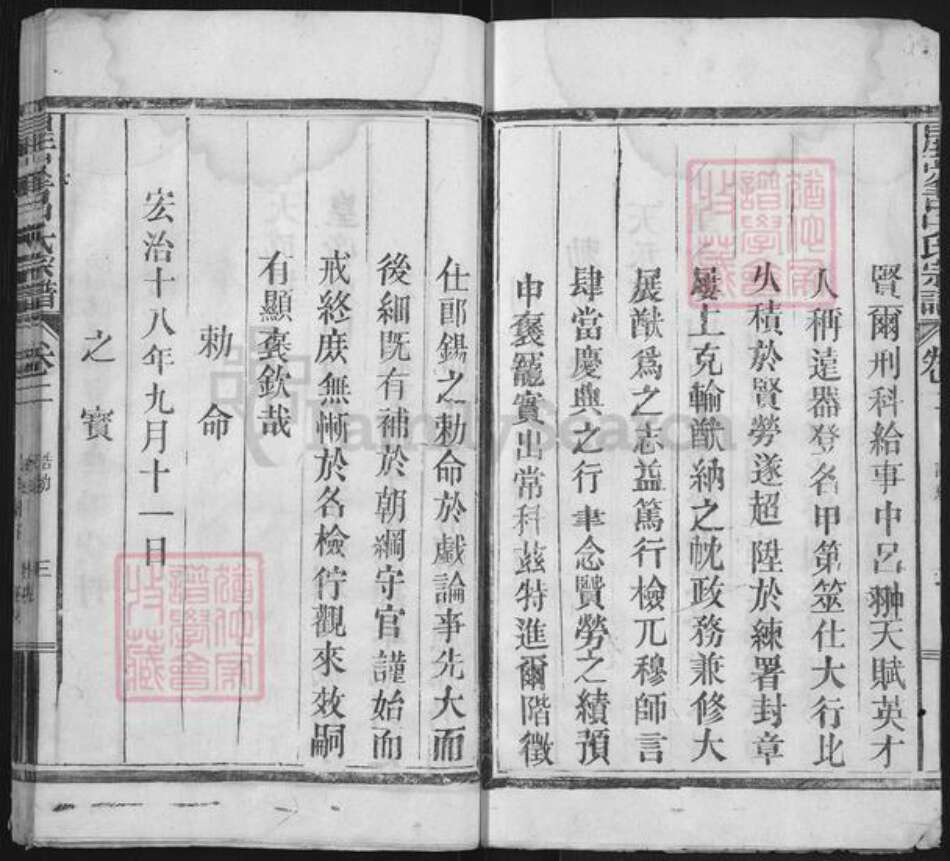 賢爾刑科給事中呂翀天賦英才
人稱達器登名甲第筮仕大行比
久積於賢勞遂超陞於練署封章
屢上克輸猷納之忱政務兼修大
展猷為之志益篤行檢兀穆師言
肆當慶典之行聿念賢勞之績預
申褒寵實出常科茲特進爾階徵
仕郎錫之勅命於戲論事先大而
後細既有補於朝綱守官謹始而
戒終庶無慚於名檢佇觀來效嗣
有顯褒欽哉
勅命
宏治十八年九月十一日
之寶
氏宗譜
卷二
誥勅
三
譜學會
收藏
FamilySearch